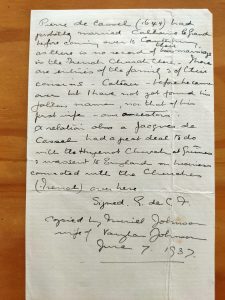 Pierre de Cassel (1644) had
probably married Catherine le Grand
before coming over to Canterbury
as there is no record of their marriage
in the French Church there. There
are entries of the family & of their
cousins before
over but I have not yet found his
fathers name, nor that of his
first wife - our ancestors.
A relation also a Jacques de
Cassel had a great deal to do
with the Huguenot Church at Guines
& went to England on business
connected with the Churches
(French) over here.
Signed. P de C F
copied by Muriel Johnson
wife of Vaughan Johnson
June 7 1937